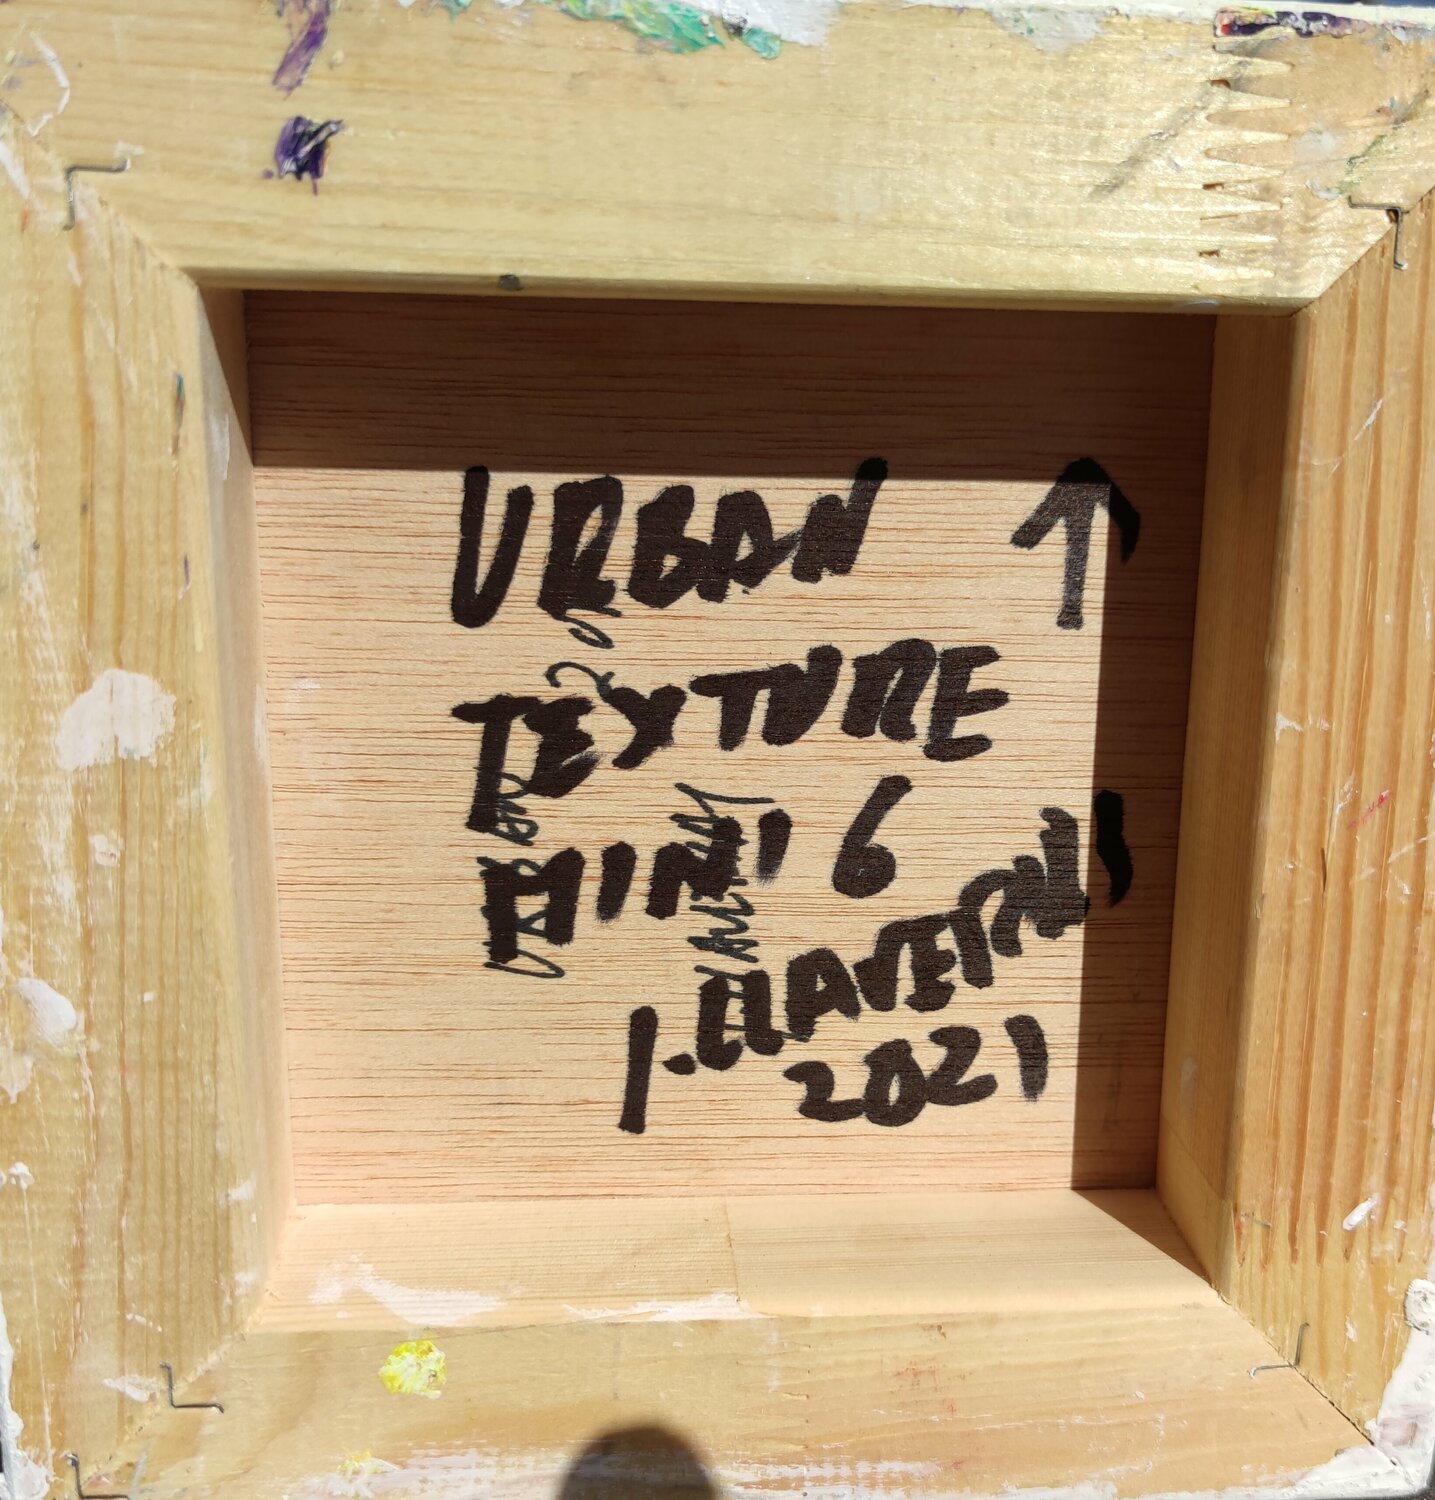 URBAN ↑
TEXTURE
MINI 6
I. CLAVERAN
2021